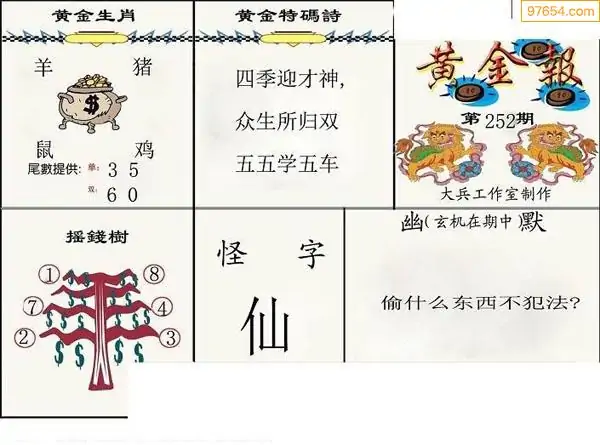 97654.com
黄金生肖
羊 猪
$
鼠 鸡
尾數提供: 单: 3 5
双: 6 0
黄金特碼詩
四季迎才神,
众生所归双
五五学五车
黄金報
第252期
大兵工作室制作
摇錢樹
① ⑧
⑦ ④
② ③
怪 字
仙
幽(玄机在期中)默
偷什么东西不犯法?